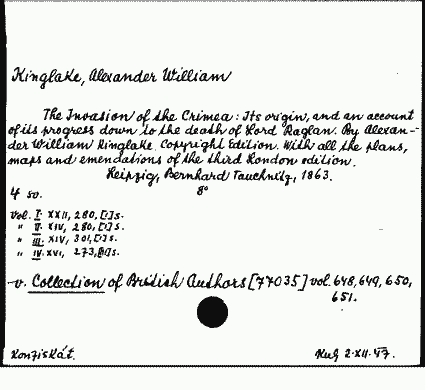 Kinglake, Alexander William
The Invasion of the Crimea: Its origin, and an account
of its progress down to the death of Lord Raglan. By Alexan-
der William Kinglake. Copyright Edition. With all the plans,
maps and emendations of the third London edition.
Leipzig, Bernhard Tauchnitz, 1863.
4 sv. 8°
Vol. I. XXII, 280, [1] s.
" II. XIV, 280, [1] s.
" III. XIV, 301, [1] s.
" IV. XVI, 273, s.
-v. Collection of British Authors [77035] vol. 648, 649, 650,
651.
Konfiskát. 2.XII.47.